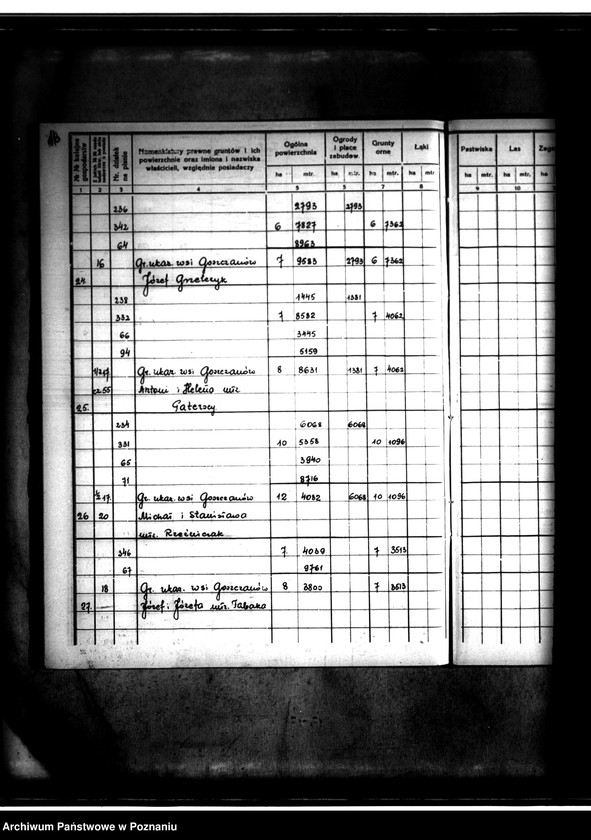 № № kolejne gospodarstw
Nr. działek na planie
Nomenklatury prawne gruntów i ich
powierzchnie oraz imiona i nazwiska
właścicieli, względnie posiadaczy
Ogólna powierzchnia
Ogrody i place zabudow.
Grunty orne
Łąki
Pastwiska
Las
ha mtr. mtr. ha mtr. ha mtr. ha mtr. ha mtr.
1 2 3 4 5 6 7 8 9 10
236 2793 2793
342 6 7827 6 7362
64 8963
16 Gr. ukaz. wsi Goszczanów 7 9583 2793 6 7362
24. Józef
238 1445 1381
332 7 8582 7 4062
66 3445
94 5159
Gr. ukaz. wsi Goszczanów 8 8631 1381 7 4062
cz 55 Antoni i Helena
25.
234 6068 6068
331 10 5358 10 1096
65 3940
71 8716
17. Gr. ukaz. wsi Goszczanów 12 4082 6068 10 1096
26 20 Michał i Stanisława
346 7 4039 7 3513
67 9761
18 Gr. ukaz. wsi Goszczanów 8 3800 7 3513
27. Józef i Józefa
Archiwum Państwowe w Poznaniu